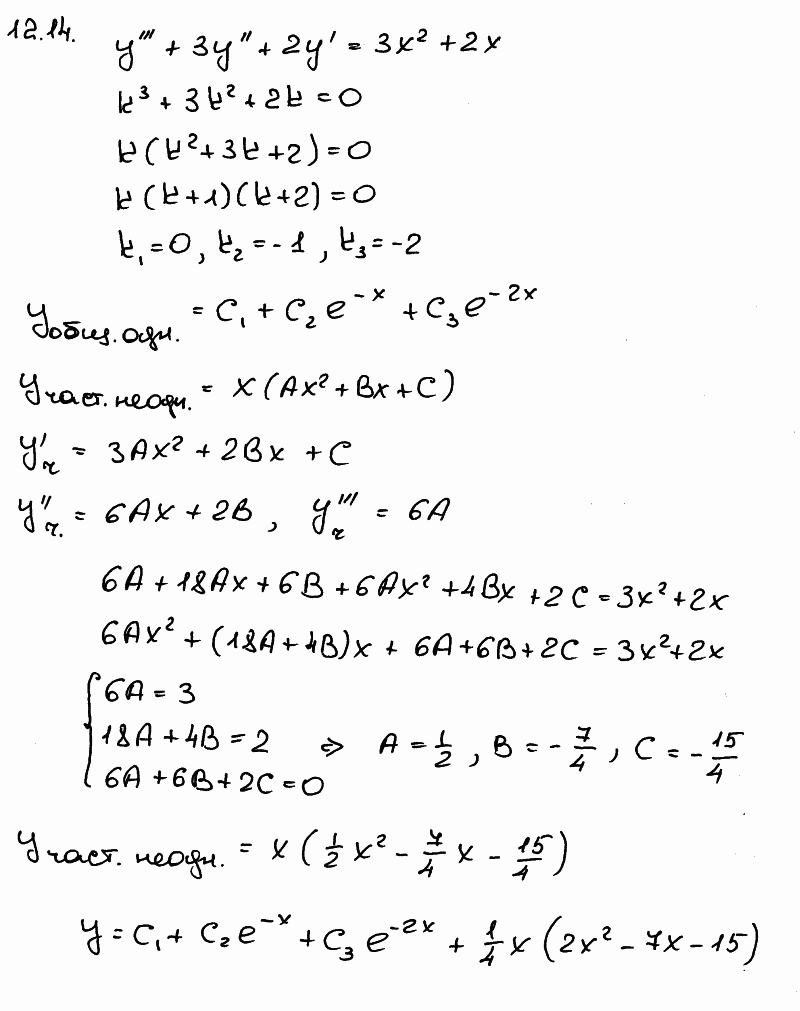 12.14. y''' + 3y'' + 2y' = 3x² + 2x
k³ + 3k² + 2k = 0
k(k² + 3k + 2) = 0
k(k+1)(k+2) = 0
k₁ = 0, k₂ = -1, k₃ = -2
y общ. одн. = C₁ + C₂e^{-x} + C₃e^{-2x}
y част. неодн. = x(Ax² + Bx + C)
y'ч = 3Ax² + 2Bx + C
y''ч. = 6Ax + 2B, y'''ч = 6A
6A + 18Ax + 6B + 6Ax² + 4Bx + 2C = 3x² + 2x
6Ax² + (18A + 4B)x + 6A + 6B + 2C = 3x² + 2x
{ 6A = 3
18A + 4B = 2 ⇒ A = 1/2, B = -7/4, C = -15/4
6A + 6B + 2C = 0
y част. неодн. = x(1/2 x² - 7/4 x - 15/4)
y = C₁ + C₂e^{-x} + C₃e^{-2x} + 1/4 x(2x² - 7x - 15)